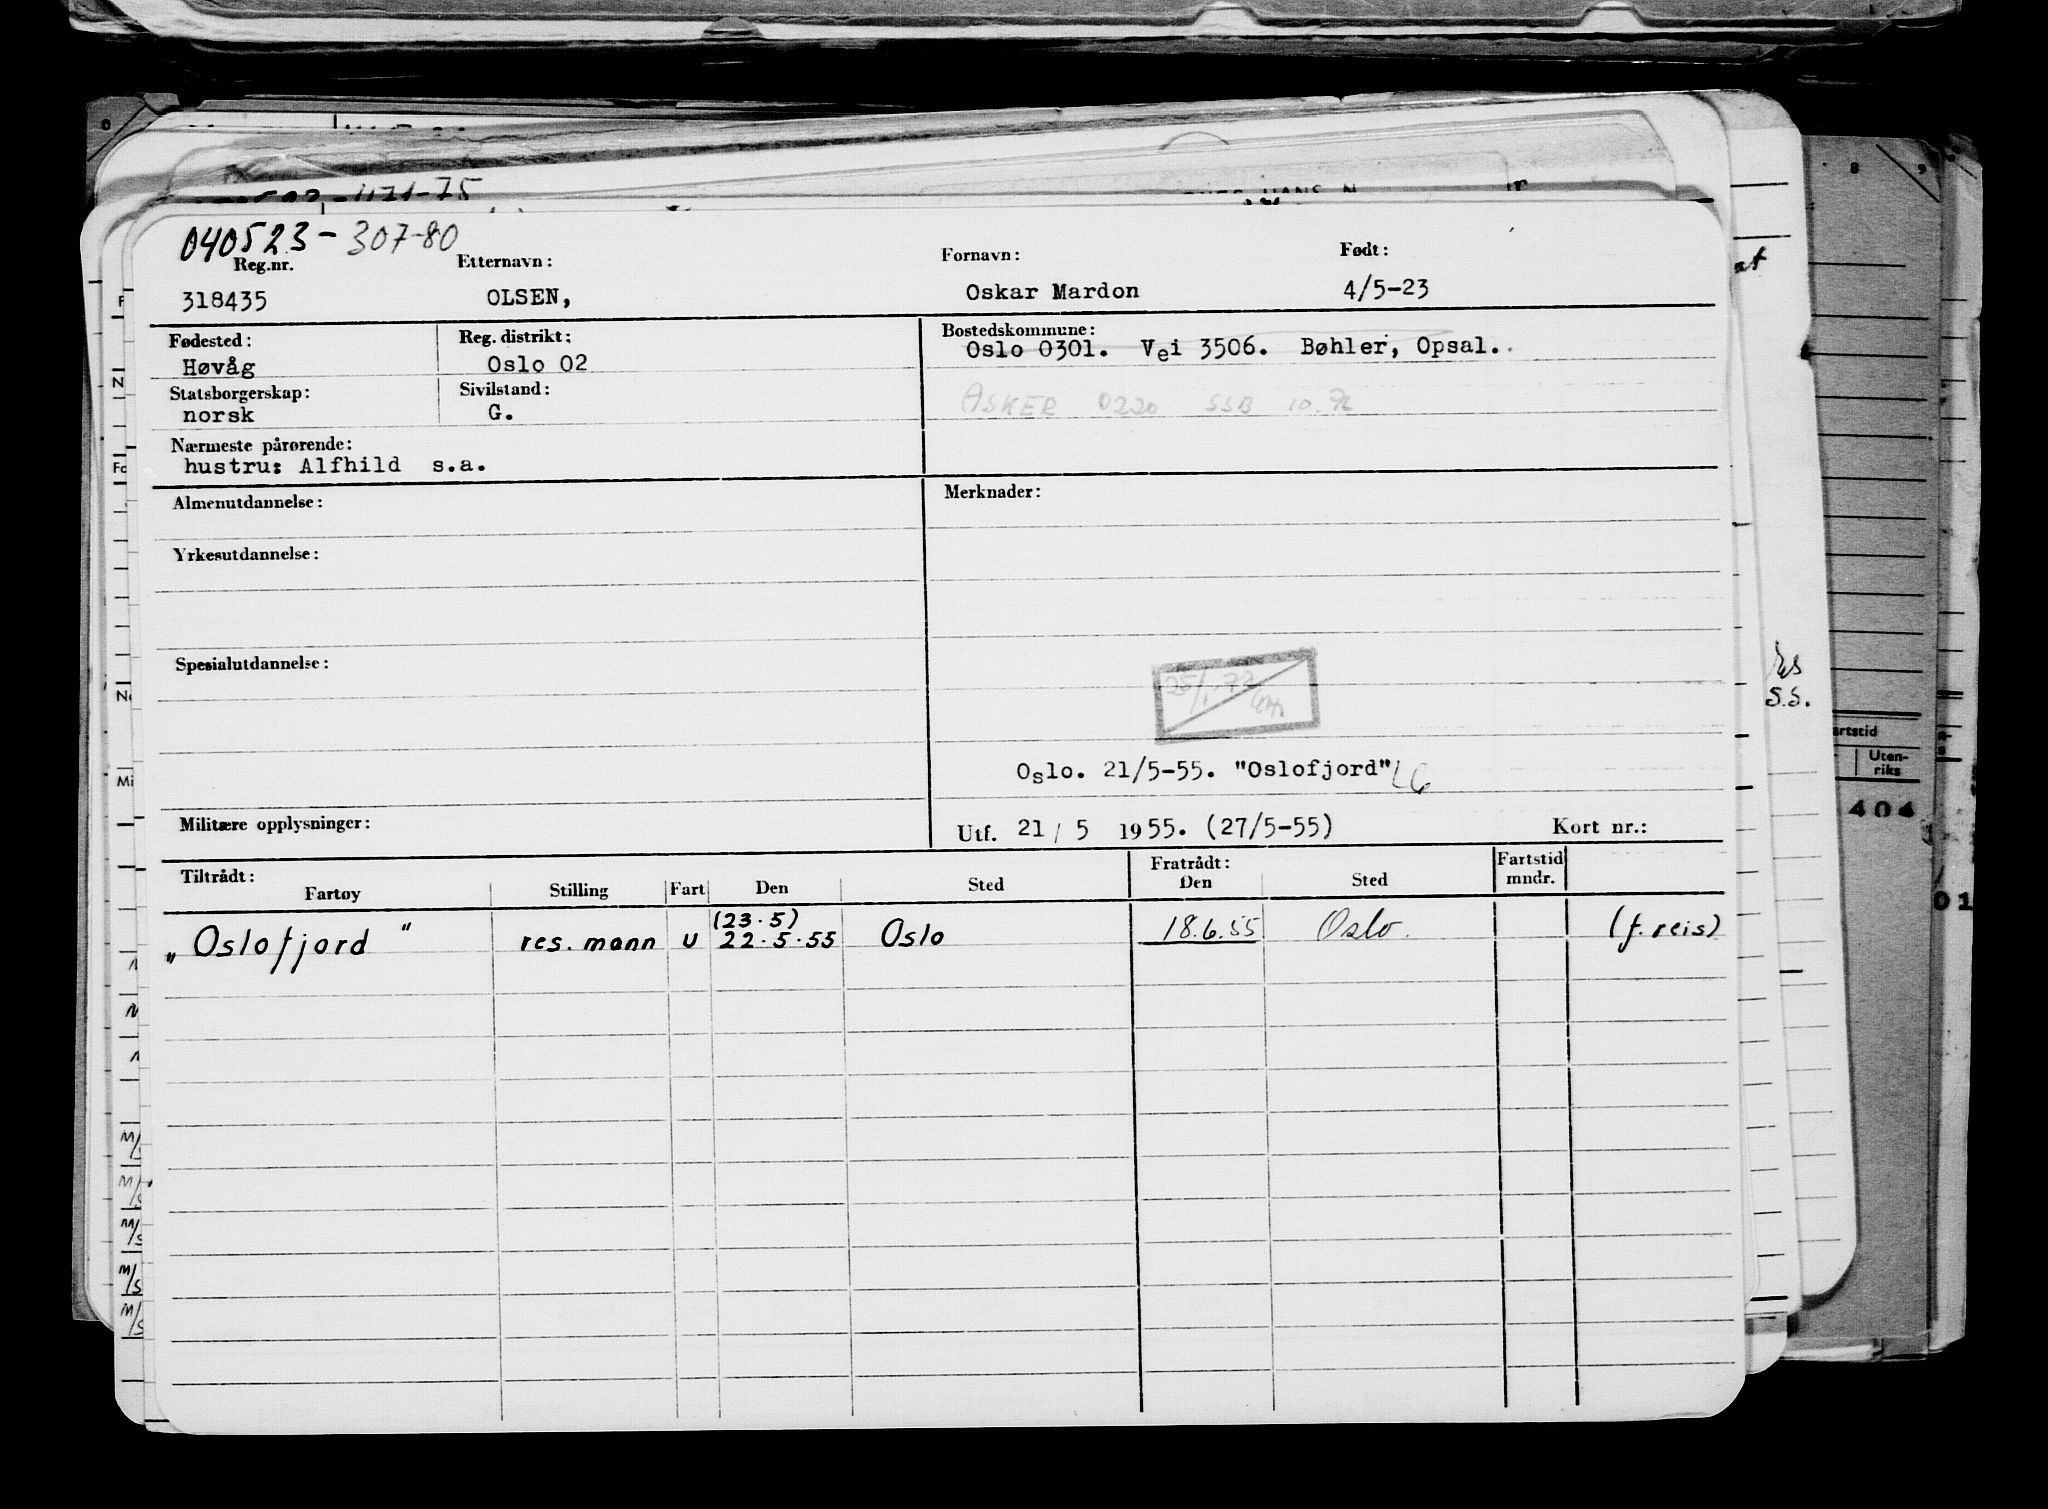 040523-307-80
Reg.nr. Etternavn: Fornavn: Født:
318435 OLSEN, Oskar Mardon 4/5-23
Fødested: Reg. distrikt: Bostedskommune:
Høvåg Oslo 02 Oslo 0301. Vei 3506. Bøhler, Opsal.
Statsborgerskap: Sivilstand:
norsk G. ASKER 0220 SSB
Nærmeste pårørende:
hustru: Alfhild s.a.
Almenutdannelse: Merknader:
Yrkesutdannelse:
Spesialutdannelse:
Oslo. 21/5-55. "Oslofjord"
Militære opplysninger: Utf. 21 / 5 1955. (27/5-55) Kort nr.:
Tiltrådt: Fratrådt: Fartstid
Fartøy Stilling Fart Den Sted Den Sted mndr.
(23.5)
„Oslofjord" res. mann U 22.5.55 Oslo 18.6.55 Oslo. (f. reis)
8 9
artstid
Uten-
riks
404
01
S.S.